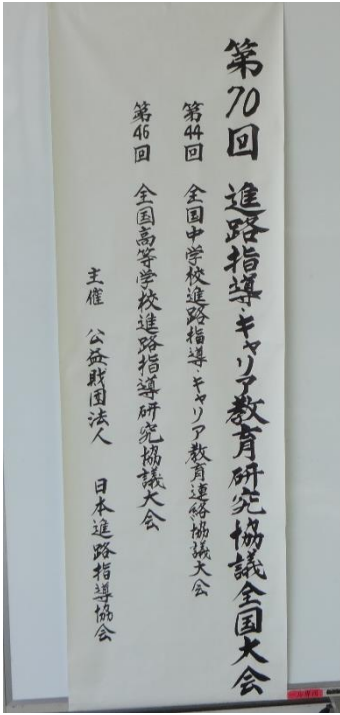 第70回 進路指導・キャリア教育研究協議全国大会
第44回 全国中学校進路指導・キャリア教育連絡協議大会
第46回 全国高等学校進路指導研究協議大会
主催 公益財団法人 日本進路指導協会